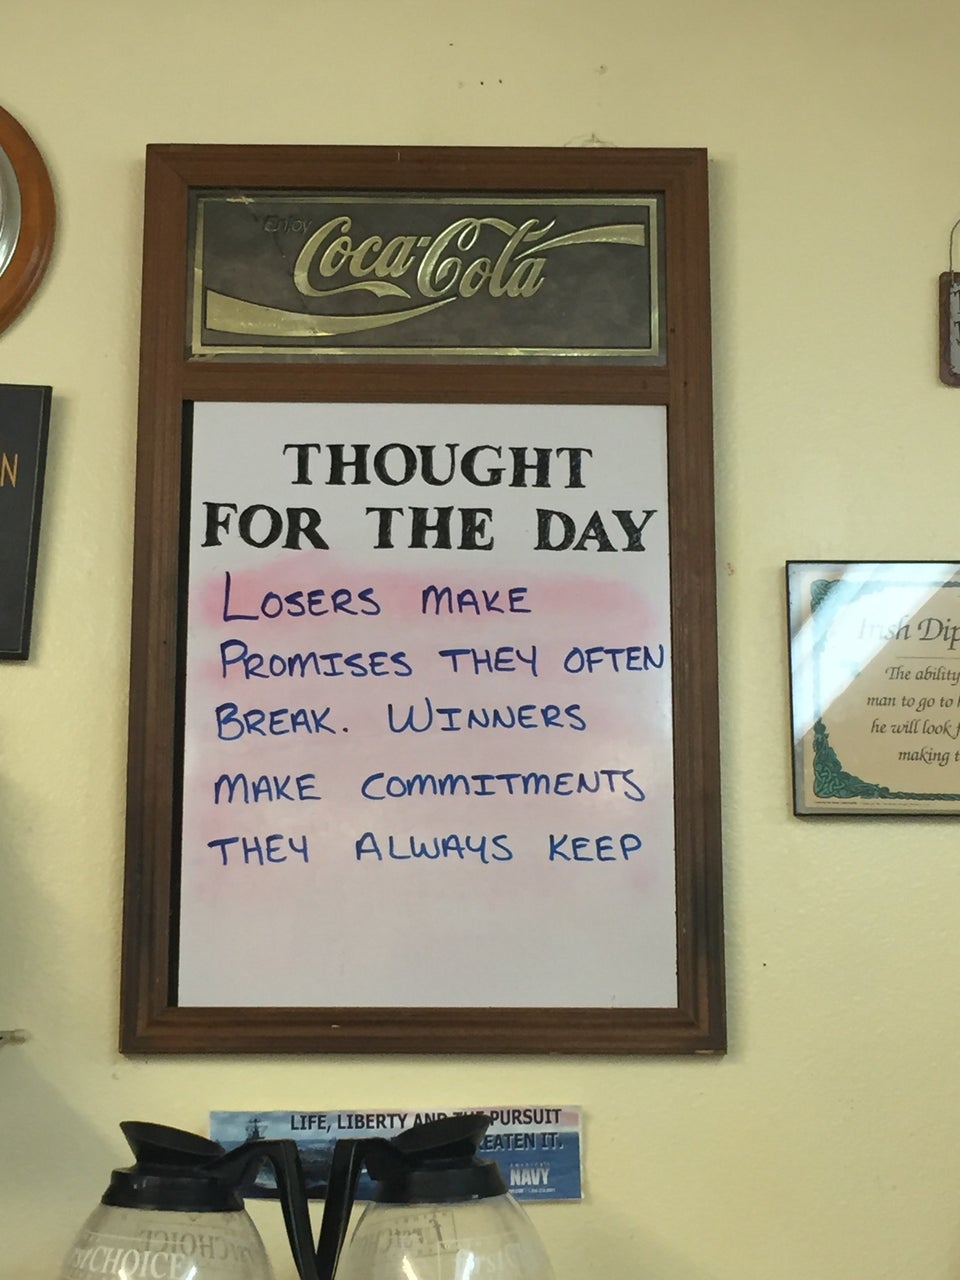 Enjoy
Coca-Cola
THOUGHT
FOR THE DAY
LOSERS MAKE
PROMISES THEY OFTEN
BREAK. WINNERS
MAKE COMMITMENTS
THEY ALWAYS KEEP
N
Irish Dip
The ability
man to go to
he will look f
making t
LIFE, LIBERTY AND THE PURSUIT
EATEN IT.
NAVY
CHOICE